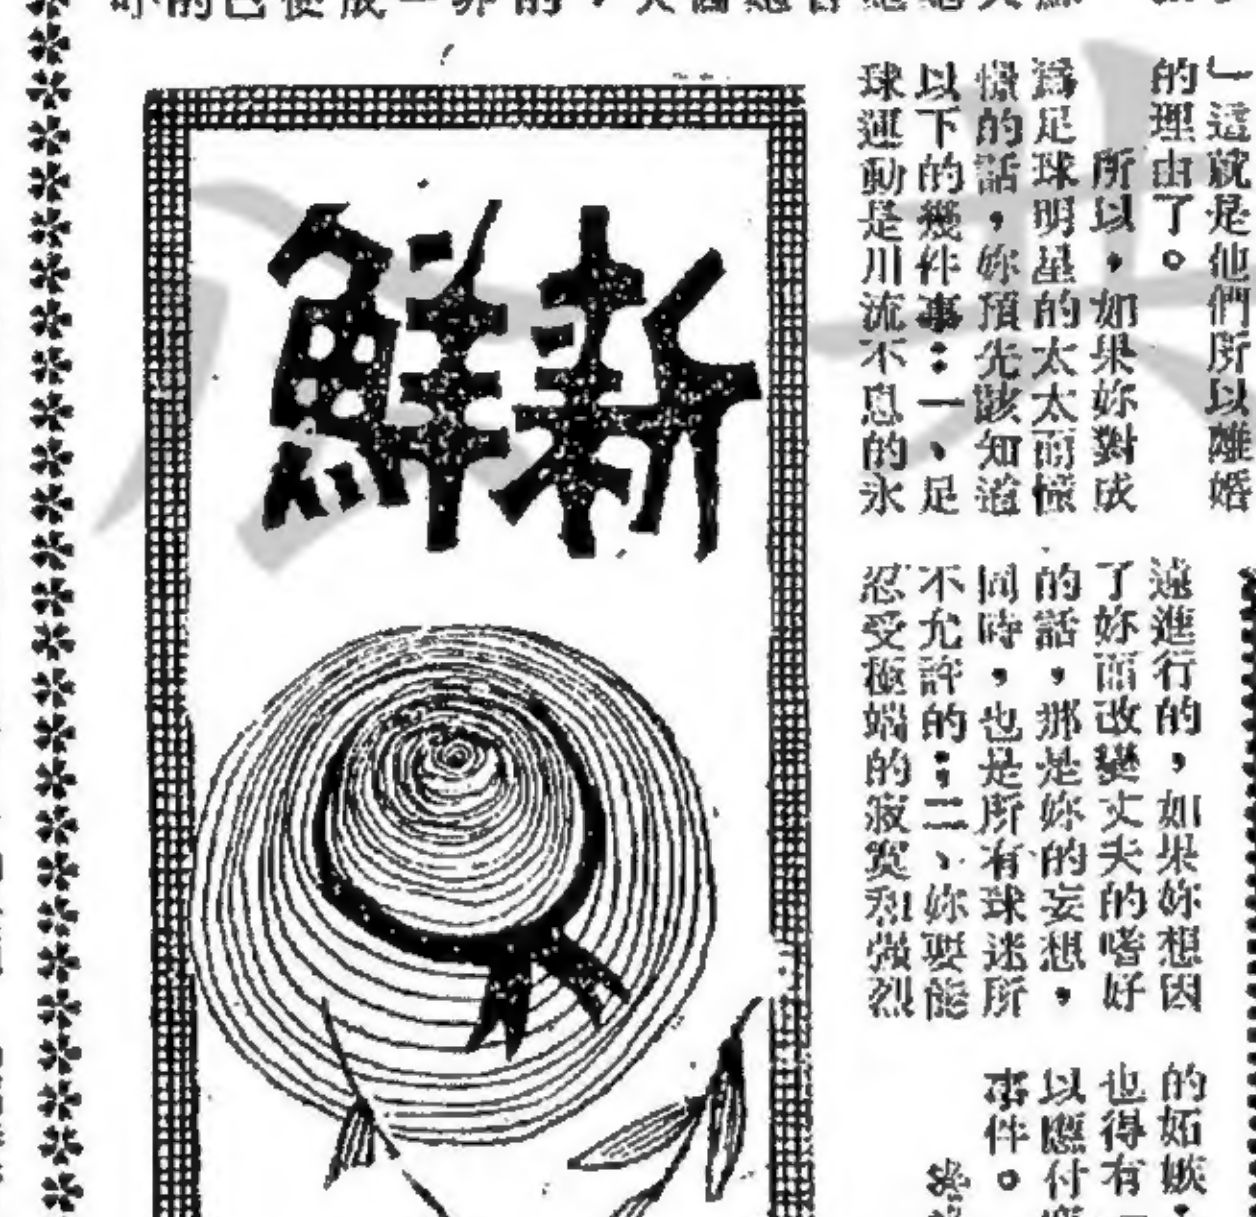 」這就是他們所以離婚
的理由了。
所以，如果妳對成
為足球明星的太太而憧
憬的話，妳預先該知道
以下的幾件事：一、足
球運動是川流不息的永
遠進行的，如果妳想因
了妳而改變丈夫的嗜好
的話，那是妳的妄想，
同時，也是所有球迷所
不允許的；二、妳要能
忍受極端的寂寞和強烈
的妬嫉，
也得有
以應付
事件。
新鮮